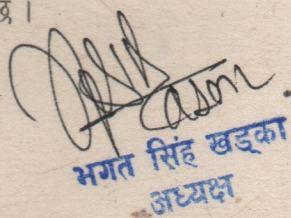 छ ।
भगत सिंह खड्का
अध्यक्ष